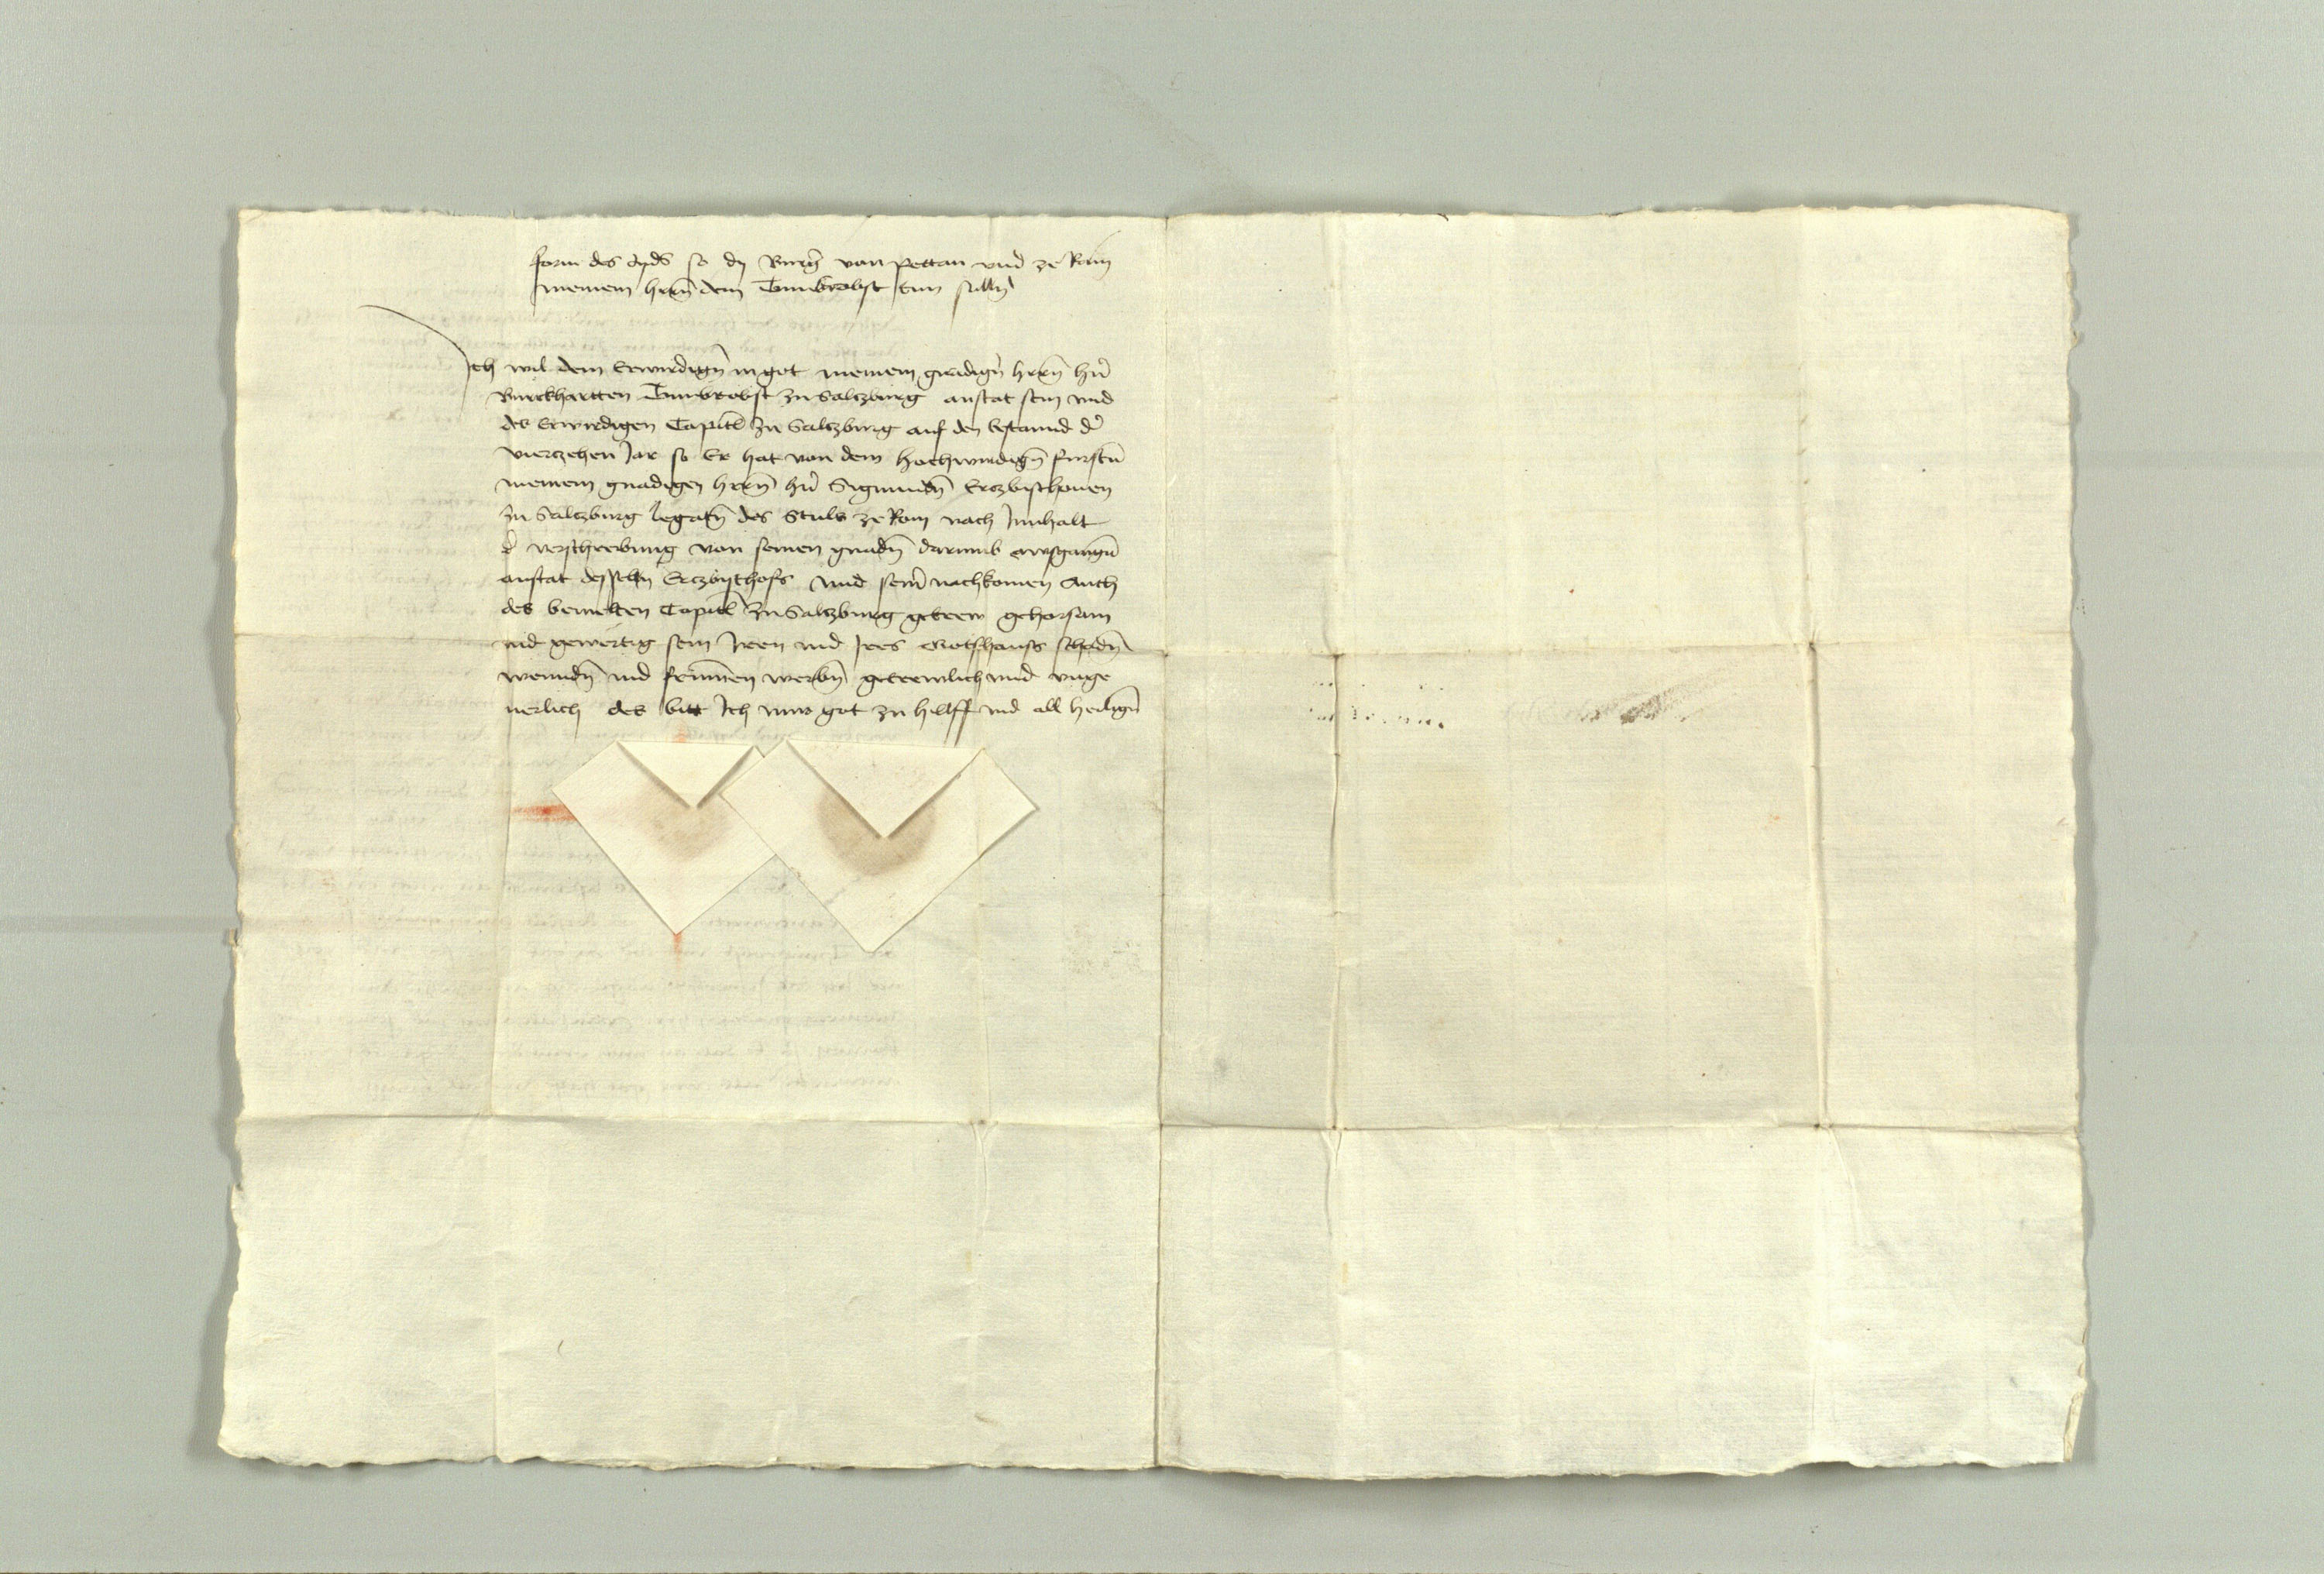 form des ayds so dy Burg̃ von Pettau vnd ze Rain
meinem hrrn̄ dem Tumbrobst tun sulln̄
Ich wil dem Erwirdign̄ in got meinem gnadign̄ hrrn̄ hn̄
Burckhartten Tumbrobst zu Salczburg anstat sein vnd
des Erwirdigen Capitl̄ zu Salczburg auf den bestannd d̄
vierczehen Jar so Er hat von dem hochwirdign̄ fursten̄
meinem gnadigen hrrn̄ hn̄ Sigmundn̄ Erczbischouen
zu Salczburg legatn̄ des Stuls ze Rom nach Innhalt
d̄ verschreibung von seinen gnadn̄ darumb awsgangn̄
anstat desselbn̄ Erczbischofs vnd sein̄ nachkomen Auch
des bemelten Capitl̄ zu Salczburg getrew gehorsam
vnd gewertig sein Iren vnd Ires Gotshauss schadn̄
wenndn̄ vnd frummen werbn̄ getrewlich vnd vnge
uerlich des bitt Ich mir got zu hillff vnd all heilign̄